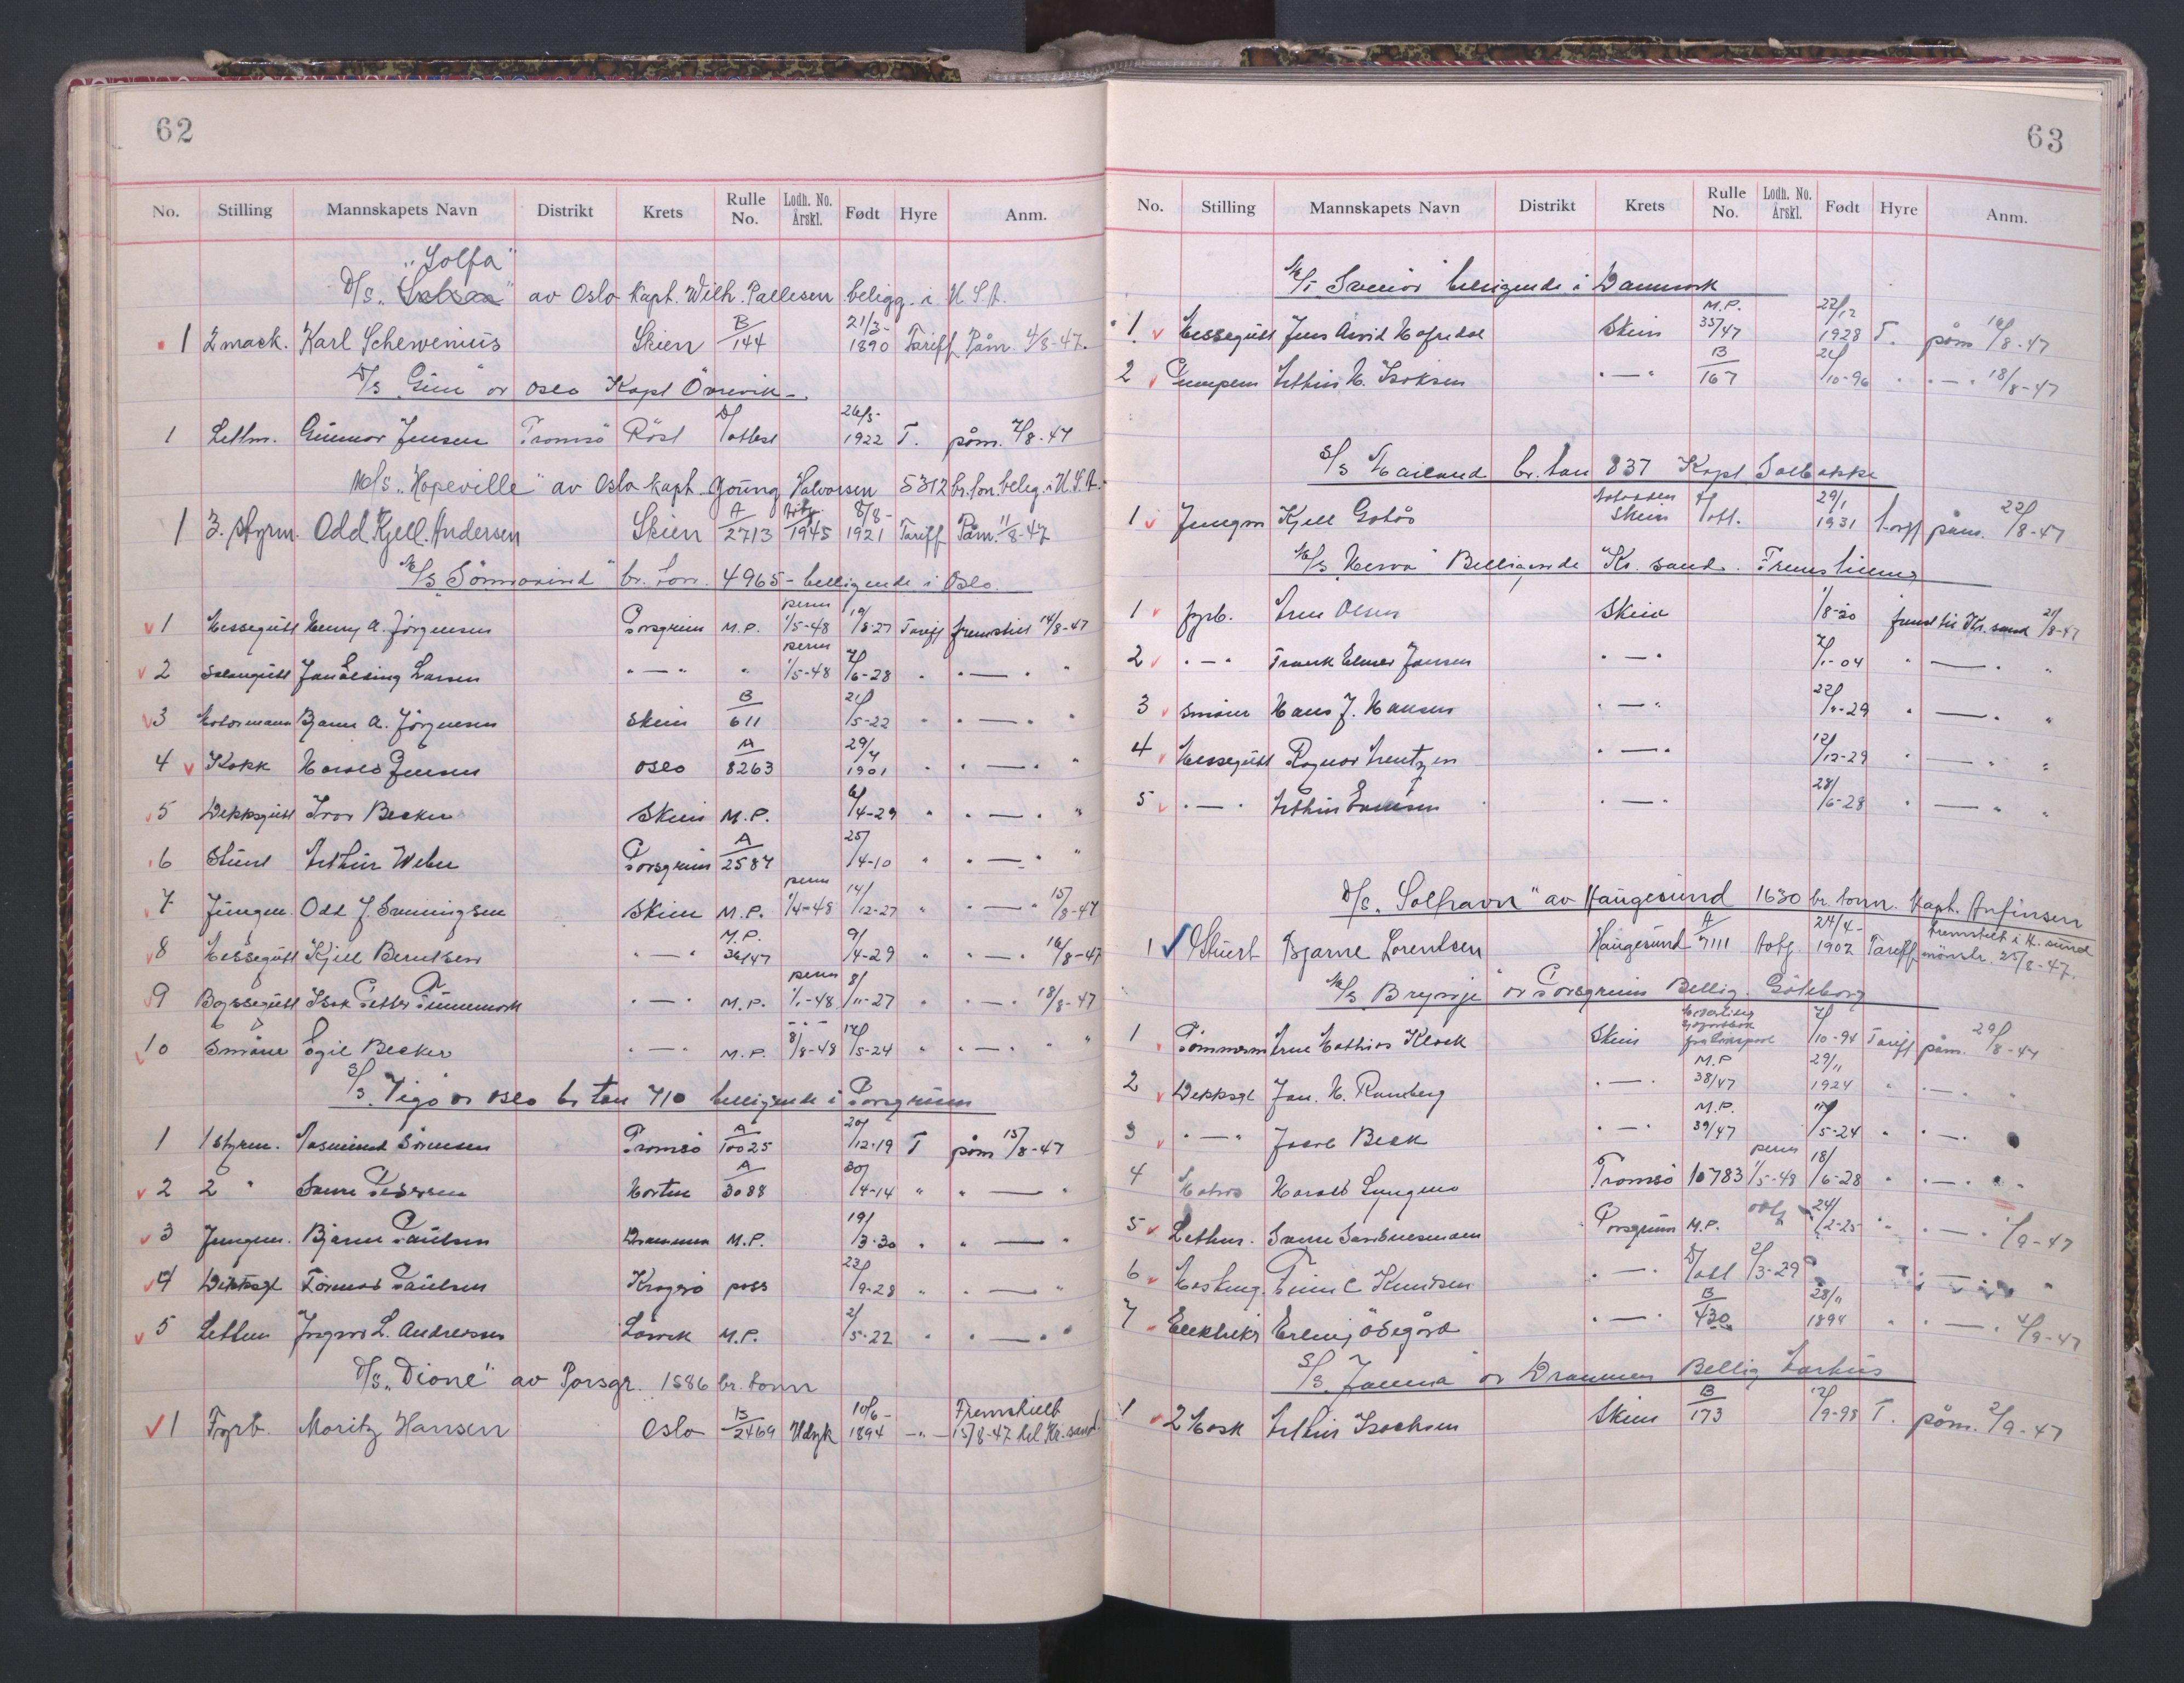 62
No. Stilling Mannskapets Navn Distrikt Krets Rulle No. Lodh. No. Årskl. Født Hyre Anm.
"Solfa"
D/S. av Oslo Kapt. Wilh. Pallesen beligg. i U.S.A.
1 2 mask. Karl Schewenius Skien B/144 21/3- 1890 Tariff Påm. 4/8-47.
D/S "Gun" av Oslo Kapt
1 Lettm. Gunnar Jensen Tromsö Röst D/attest 26/5- 1922 T. påm. 7/8-47
M/S. "Hopeville" av Oslo Kapt. Young Halvorsen 5312 br. ton. belig. i U.S.A.
1 3. styrm. Odd Kjell. Andersen Skien A/2713 1945 8/8- 1921 Tariff Påm. 11/8-47
M/S br. ton. 4965 - belligende i Oslo.
1 Messegutt Henry A. Jörgensen Porsgrunn M.P. perm 1/5-48 19/8-27 Tariff fremstilt 14/8-47
2 Salongutt Jan Larsen " — " " perm 1/5-48 /6-28 " " — " "
3 Motormann Bjarne A. Jörgensen Skien B/611 21/5-22 " " — " "
4 Kokk Harald Jensen Oslo A/8263 29/7 1901 " " — " "
5 Dekksgutt Ivar Becker Skien M.P. 6/4-29 " " — " "
6 Stuert Arthur Weber Porsgrunn A/2587 25/4-10 " " — " "
7 Jungm. Odd J. Skien M.P. perm 1/4-48 14/12-27 " " — " 15/8-47
8 Messegutt Kjell Berntsen " — " M.P. 36/47 9/4-29 " " — " 16/8-47
9 Byssegutt Isak Petter " — " M.P. perm 1/1-48 8/11-27 " " — " 18/8-47
10 Smörer Egil Becker " — " M.P. 8/8-48 /5-24 " " — " "
S/S. Vigo av Oslo br ton 710 belligende i Porsgrunn
1 1 styrm. Sörensen Tromsö A/10025 20/12-19 T påm 15/8-47
2 2 " Horten A/3088 30/4-14 " " — "
3 Jungm. Bjarne Paulsen Drammen M.P. 19/3-30 " " — "
4 Dekksgt Tormod Paulsen Kragerö pass 22/9-28 " " — "
5 Lettm Ingvar L. Andressen Larvik M.P. 2/5-22 " " — "
D/S. "Dione" av Porsgr. 1586 br. tonn
1 Fyrb. Moritz Hansen Oslo B/2469 Udsyk 10/6- 1894 — " — Fremstilt 15/8-47 til Kr. sand.
63
No. Stilling Mannskapets Navn Distrikt Krets Rulle No. Lodh. No. Årskl. Født Hyre Anm.
M/S belligende i Danmark
1 Messegutt Jens Arvid Skien M.P. 35/47 22/12 1928 T. påm 16/8-47
2 Pumpem Arthur H. Isaksen " — " B/167 /10-96 " " — " 18/8-47
S/S br. ton 837 Kapt Solbakke
1 Jungm Kjell Skien D/att. 29/1 1931 påm. 22/8-47
M/S "Herva" Belligende Kr. sand. Fremstilling
1 fyrb. Arne Olsen Skien 1/8-20 fremst til Kr. sand 21/8-47
2 " — " Frank Elmer Jansen " — " /1-04 " — " "
3 Smörer Hans J. Hansen " — " 22/ -29 " — " "
4 Messegutt Ragnar Arentzen " — " 12/12-29 " — " "
5 " — " Arthur " — " 28/6-28 " — " "
D/S. "Solhavn" av Haugesund 1630 br. tonn. Kapt. Anfinsen
1 Stuert Bjarne Lorentsen Haugesund A/7111 24/4- 1902 Tariff fremstilt i H. sund mönstr. 25/8-47.
M/S Brevig av Porsgrunn Bellig. Göteborg
1 Tömmerm Arne Mathias Klock Skien 7/10-94 Tariff påm. 29/8-47
2 Dekksgt Jan. H. Ramberg " — " M.P. 38/47 29/11 1924 " " — " "
3 " — " Jacob Beck " — " M.P. 39/47 /5-24 " " — "
4 Matros Harald Lyngmo Tromsö 10783 perm 1/5-48 18/6-28 " " — " "
5 Lettm. Porsgrunn M.P. 24/2-25 " " — " 1/9-47
6 Finn C Knudsen " — " D/att 2/3-29 " — " "
7 Elektriker Erling Ödegård " — " B/430 28/11 1894 " " — " 4/9-47
S/S. av Drammen Bellig Aarhus
1 2 Mask Arthur Isachsen Skien B/173 /9-98 T. påm. 2/9-47